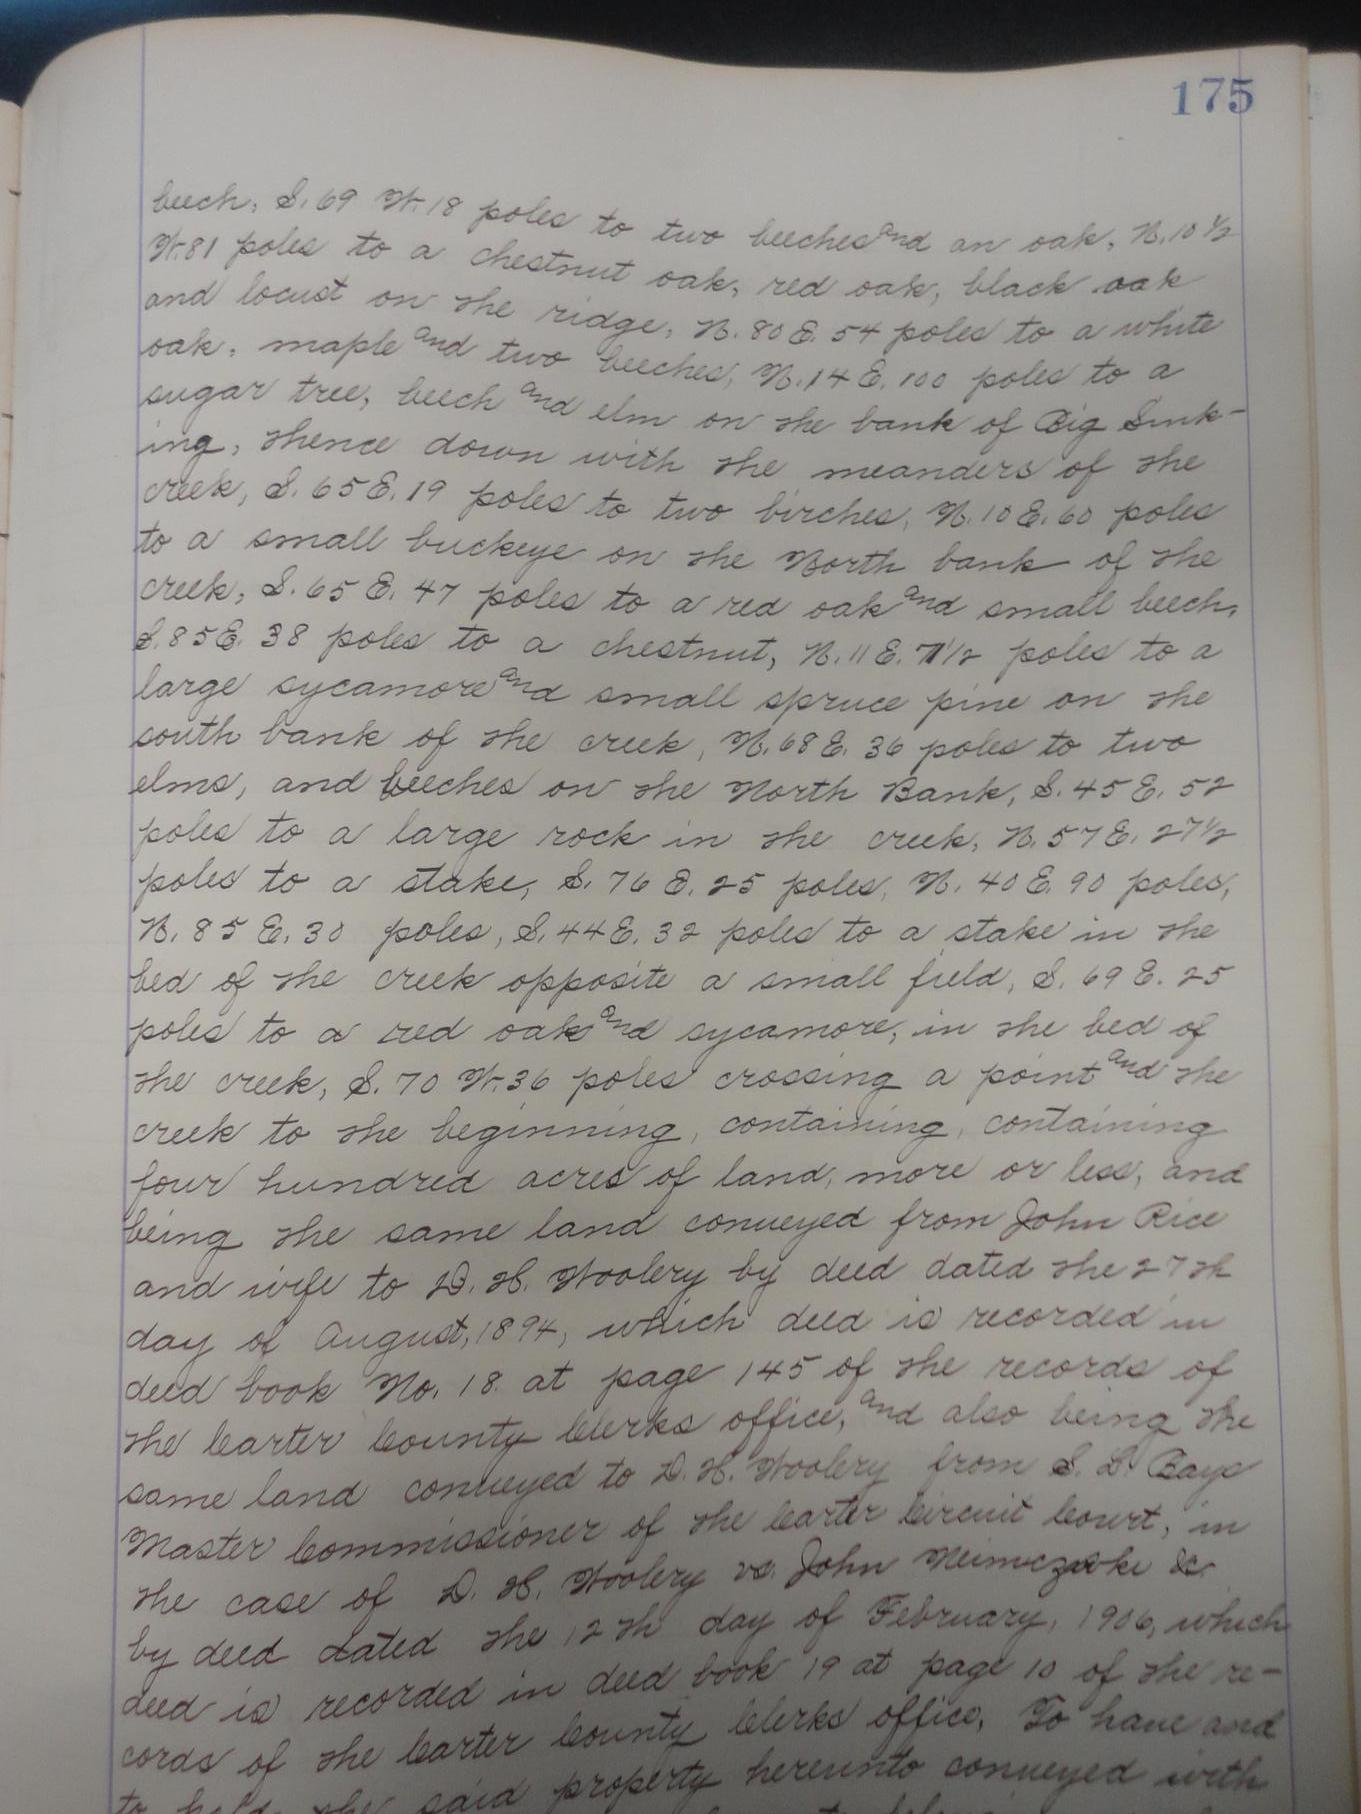 175
beech, S. 69 W. 18 poles to two beeches and an oak, N. 10 1/2
W. 81 poles to a chestnut oak, red oak, black oak
and locust on the ridge, N. 80 E. 54 poles to a white
oak, maple and two beeches, N. 14 E. 100 poles to a
sugar tree, beech and elm on the bank of Big Sink-
ing, thence down with the meanders of the
creek, S. 65 E. 19 poles to two birches, N. 10 E. 60 poles
to a small buckeye on the North bank of the
creek, S. 65 E. 47 poles to a red oak and small beech,
S. 85 E. 38 poles to a chestnut, N. 11 E. 71 1/2 poles to a
large sycamore and small spruce pine on the
south bank of the creek, N. 68 E. 36 poles to two
elms, and beeches on the North Bank, S. 45 E. 52
poles to a large rock in the creek, N. 57 E. 27 1/2
poles to a stake, S. 76 E. 25 poles, N. 40 E. 90 poles,
N. 85 E. 30 poles, S. 44 E. 32 poles to a stake in the
bed of the creek opposite a small field, S. 69 E. 25
poles to a red oak and sycamore, in the bed of
the creek, S. 70 W. 36 poles crossing a point and the
creek to the beginning, containing, containing
four hundred acres of land, more or less, and
being the same land conveyed from John Rice
and wife to D. H. Woolery by deed dated the 27th
day of August, 1894, which deed is recorded in
deed book No. 18 at page 145 of the records of
the Carter County Clerks office, and also being the
same land conveyed to D. H. Woolery from S. L. Bays
Master Commissioner of the Carter Circuit Court, in
the case of D. H. Woolery vs. John &c.
by deed dated the 12th day of February, 1906, which
deed is recorded in deed book 19 at page 10 of the re-
cords of the Carter County Clerks office, To have and
to hold the said property hereunto conveyed with